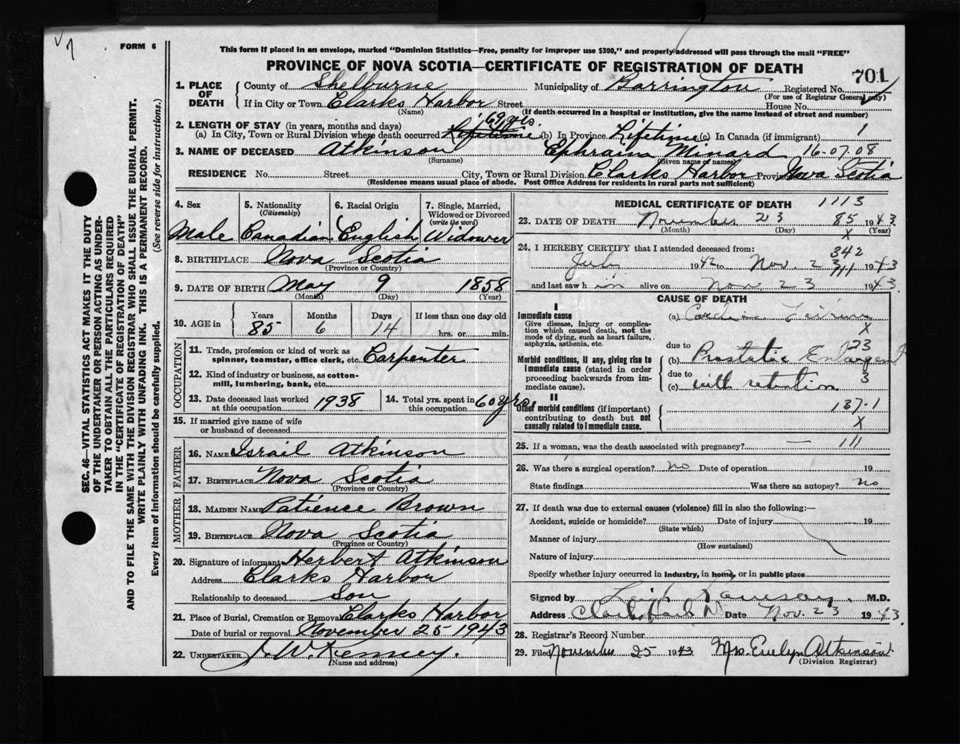 FORM 6
This form if placed in an envelope, marked "Dominion Statistics—Free, penalty for improper use $300," and properly addressed will pass through the mail "FREE"
PROVINCE OF NOVA SCOTIA—CERTIFICATE OF REGISTRATION OF DEATH
701
1. PLACE OF DEATH
County of Shelburne Municipality of Barrington Registered No.
(For use of Registrar General only)
If in City or Town Clarks Harbor Street House No.
(Name) (If death occurred in a hospital or institution, give the name instead of street and number)
2. LENGTH OF STAY (in years, months and days) 69 yrs.
(a) In City, Town or Rural Division where death occurred Lifetime (b) In Province Lifetime (c) In Canada (if immigrant) 1
3. NAME OF DECEASED Atkinson Ephraim Minard 16-07-08
(Surname) (Given name or names)
RESIDENCE No. Street City, Town or Rural Division Clarks Harbor Province Nova Scotia
(Residence means usual place of abode. Post Office Address for residents in rural parts not sufficient)
4. Sex
Male
5. Nationality (Citizenship)
Canadian
6. Racial Origin
English
7. Single, Married, Widowed or Divorced (write the word)
Widower
8. BIRTHPLACE Nova Scotia
(Province or Country)
9. DATE OF BIRTH May 9 1858
(Month) (Day) (Year)
10. AGE in Years Months Days If less than one day
85 6 14 hrs. or min.
OCCUPATION
11. Trade, profession or kind of work as spinner, teamster, office clerk, etc. Carpenter
12. Kind of industry or business, as cotton-mill, lumbering, bank, etc.
13. Date deceased last worked at this occupation 1938
14. Total yrs. spent in this occupation 60 yrs.
15. If married give name of wife or husband of deceased
FATHER
16. NAME Israil Atkinson
17. BIRTHPLACE Nova Scotia
(Province or Country)
MOTHER
18. MAIDEN NAME Patience Brown
19. BIRTHPLACE Nova Scotia
(Province or Country)
20. Signature of informant Herbert Atkinson
Address Clarks Harbor
Relationship to deceased Son
21. Place of Burial, Cremation or Removal Clarks Harbor
Date of burial or removal November 25 1943
22. UNDERTAKER J. W. Kenney.
(Name and address)
MEDICAL CERTIFICATE OF DEATH 1113
23. DATE OF DEATH November 23 85 1943
(Month) (Day) X (Year)
24. I HEREBY CERTIFY that I attended deceased from: 342
July 1942 to Nov. 23 1943
and last saw him alive on Nov. 23 1943.
CAUSE OF DEATH
I
Immediate cause
Give disease, injury or complication which caused death, not the mode of dying, such as heart failure, asphyxia, asthenia, etc.
(a)
X
due to 123
Morbid conditions, if any, giving rise to immediate cause (stated in order proceeding backwards from immediate cause).
(b) Prostatic
due to 3
(c) with retention
II
137.1
Other morbid conditions (if important) contributing to death but not causally related to immediate cause.
X
25. If a woman, was the death associated with pregnancy? — 111
26. Was there a surgical operation? no Date of operation 19
State findings Was there an autopsy? no
27. If death was due to external causes (violence) fill in also the following:—
Accident, suicide or homicide? Date of injury 19
(State which)
Manner of injury
(How sustained)
Nature of injury
Specify whether injury occurred in industry, in home, or in public place
Signed by M.D.
Address Date Nov. 23 1943.
28. Registrar's Record Number
29. Filed November 25 1943 Mrs. Evelyn Atkinson
(Division Registrar)
SEC. 46—VITAL STATISTICS ACT MAKES IT THE DUTY
OF THE UNDERTAKER OR PERSON ACTING AS UNDERTAKER TO OBTAIN ALL THE PARTICULARS REQUIRED
IN THE "CERTIFICATE OF REGISTRATION OF DEATH"
AND TO FILE THE SAME WITH THE DIVISION REGISTRAR WHO SHALL ISSUE THE BURIAL PERMIT.
WRITE PLAINLY WITH UNFADING INK. THIS IS A PERMANENT RECORD.
Every item of information should be carefully supplied. (See reverse side for instructions.)